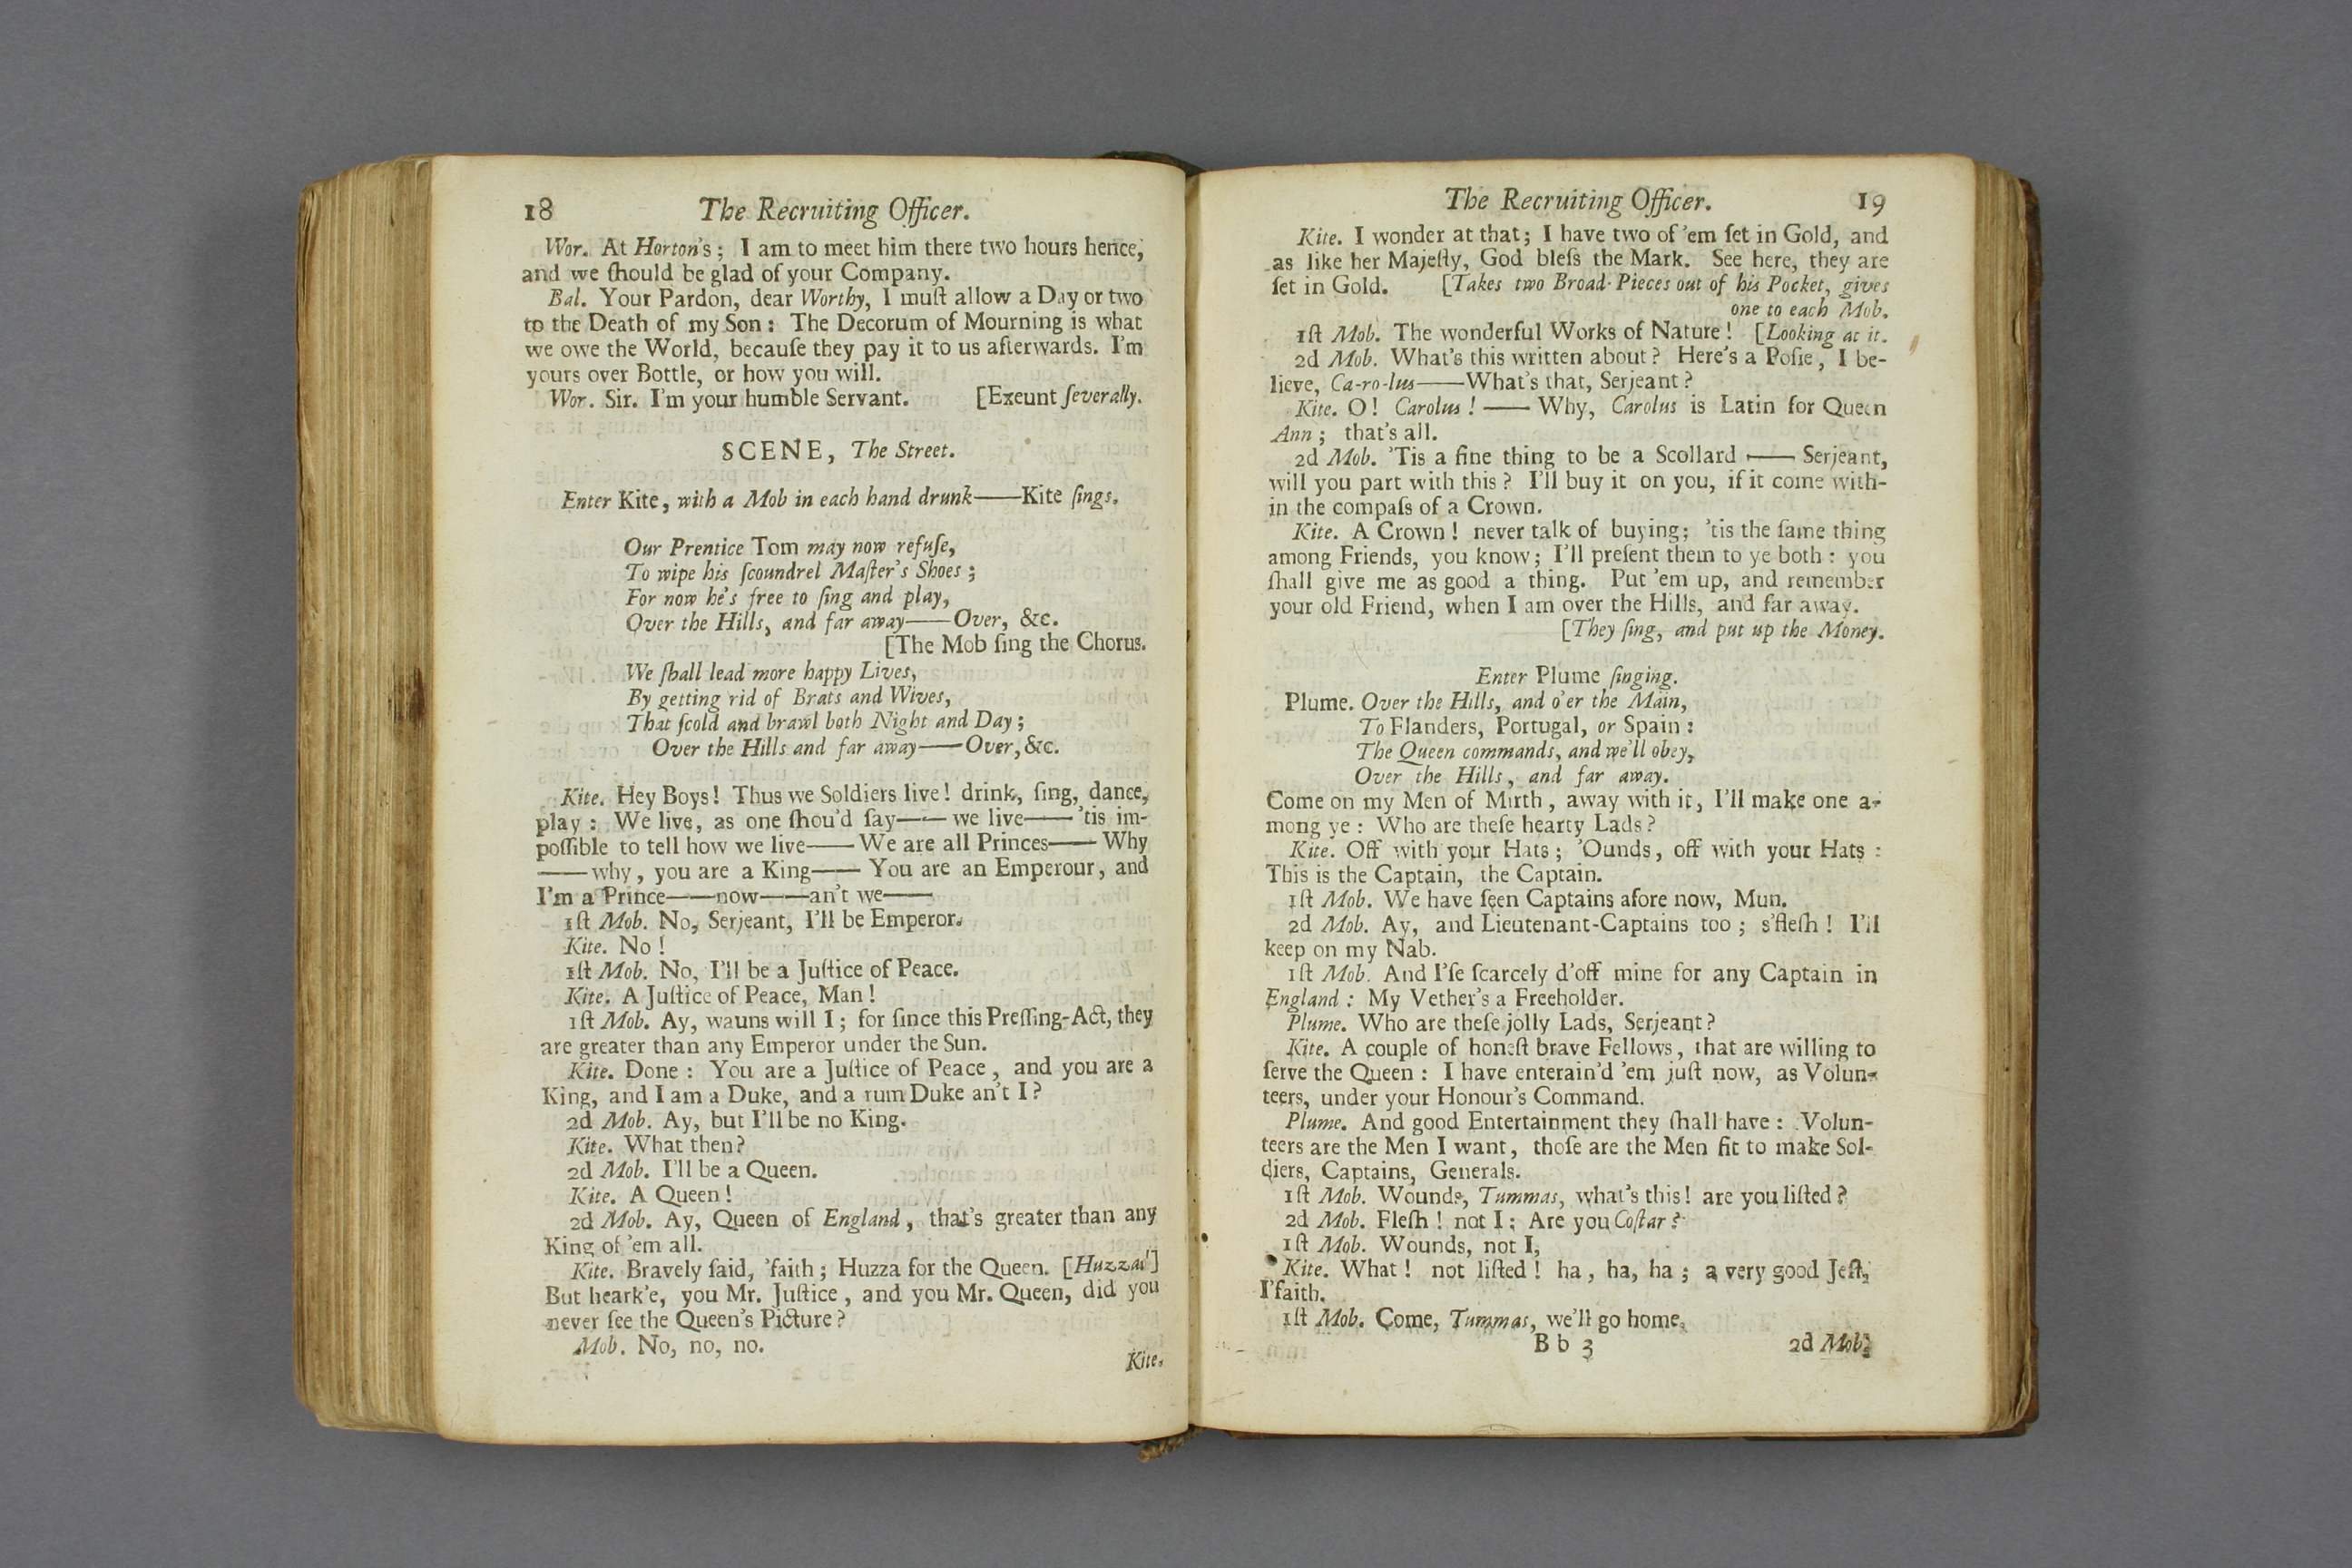 18 The Recruiting Officer.
Wor. At Horton's; I am to meet him there two hours hence,
and we ſhould be glad of your Company.
Bal. Your Pardon, dear Worthy, I muſt allow a Day or two
to the Death of my Son: The Decorum of Mourning is what
we owe the World, becauſe they pay it to us afterwards. I'm
yours over Bottle, or how you will.
Wor. Sir. I'm your humble Servant. [Exeunt ſeverally.
SCENE, The Street.
Enter Kite, with a Mob in each hand drunk——Kite ſings.
Our Prentice Tom may now refuſe,
To wipe his ſcoundrel Maſter's Shoes;
For now he's free to ſing and play,
Over the Hills, and far away——Over, &c.
[The Mob ſing the Chorus.
We ſhall lead more happy Lives,
By getting rid of Brats and Wives,
That ſcold and brawl both Night and Day;
Over the Hills and far away——Over, &c.
Kite. Hey Boys! Thus we Soldiers live! drink, ſing, dance,
play: We live, as one ſhou'd ſay—— we live—— 'tis im-
poſſible to tell how we live—— We are all Princes—— Why
——why, you are a King—— You are an Emperour, and
I'm a Prince——now——an't we——
1ſt Mob. No, Serjeant, I'll be Emperor.
Kite. No!
1ſt Mob. No, I'll be a Juſtice of Peace.
Kite. A Juſtice of Peace, Man!
1ſt Mob. Ay, wauns will I; for ſince this Preſſing-Act, they
are greater than any Emperor under the Sun.
Kite. Done: You are a Juſtice of Peace, and you are a
King, and I am a Duke, and a rum Duke an't I?
2d Mob. Ay, but I'll be no King.
Kite. What then?
2d Mob. I'll be a Queen.
Kite. A Queen!
2d Mob. Ay, Queen of England, that's greater than any
King of 'em all.
Kite. Bravely ſaid, 'faith; Huzza for the Queen. [Huzza!]
But heark'e, you Mr. Juſtice, and you Mr. Queen, did you
never ſee the Queen's Picture?
Mob. No, no, no.
Kite.
The Recruiting Officer. 19
Kite. I wonder at that; I have two of 'em ſet in Gold, and
as like her Majeſty, God bleſs the Mark. See here, they are
ſet in Gold. [Takes two Broad-Pieces out of his Pocket, gives
one to each Mob.
1ſt Mob. The wonderful Works of Nature! [Looking at it.
2d Mob. What's this written about? Here's a Poſie, I be-
lieve, Ca-ro-lus——What's that, Serjeant?
Kite. O! Carolus!—— Why, Carolus is Latin for Queen
Ann; that's all.
2d Mob. 'Tis a fine thing to be a Scollard —— Serjeant,
will you part with this? I'll buy it on you, if it come with-
in the compaſs of a Crown.
Kite. A Crown! never talk of buying; 'tis the ſame thing
among Friends, you know; I'll preſent them to ye both: you
ſhall give me as good a thing. Put 'em up, and remember
your old Friend, when I am over the Hills, and far away.
[They ſing, and put up the Money.
Enter Plume ſinging.
Plume. Over the Hills, and o'er the Main,
To Flanders, Portugal, or Spain:
The Queen commands, and we'll obey,
Over the Hills, and far away.
Come on my Men of Mirth, away with it, I'll make one a-
mong ye: Who are theſe hearty Lads?
Kite. Off with your Hats; 'Ounds, off with your Hats:
This is the Captain, the Captain.
1ſt Mob. We have ſeen Captains afore now, Mun.
2d Mob. Ay, and Lieutenant-Captains too; s'fleſh! I'll
keep on my Nab.
1ſt Mob. And I'ſe ſcarcely d'off mine for any Captain in
England: My Vether's a Freeholder.
Plume. Who are theſe jolly Lads, Serjeant?
Kite. A couple of honeſt brave Fellows, that are willing to
ſerve the Queen: I have enterain'd 'em juſt now, as Volun-
teers, under your Honour's Command.
Plume. And good Entertainment they ſhall have: Volun-
teers are the Men I want, thoſe are the Men fit to make Sol-
diers, Captains, Generals.
1ſt Mob. Wounds, Tummas, what's this! are you liſted?
2d Mob. Fleſh! not I: Are you Coſtar?
1ſt Mob. Wounds, not I,
Kite. What! not liſted! ha, ha, ha; a very good Jeſt,
I'faith.
1ſt Mob. Come, Tummas, we'll go home.
B b 3 2d Mob.